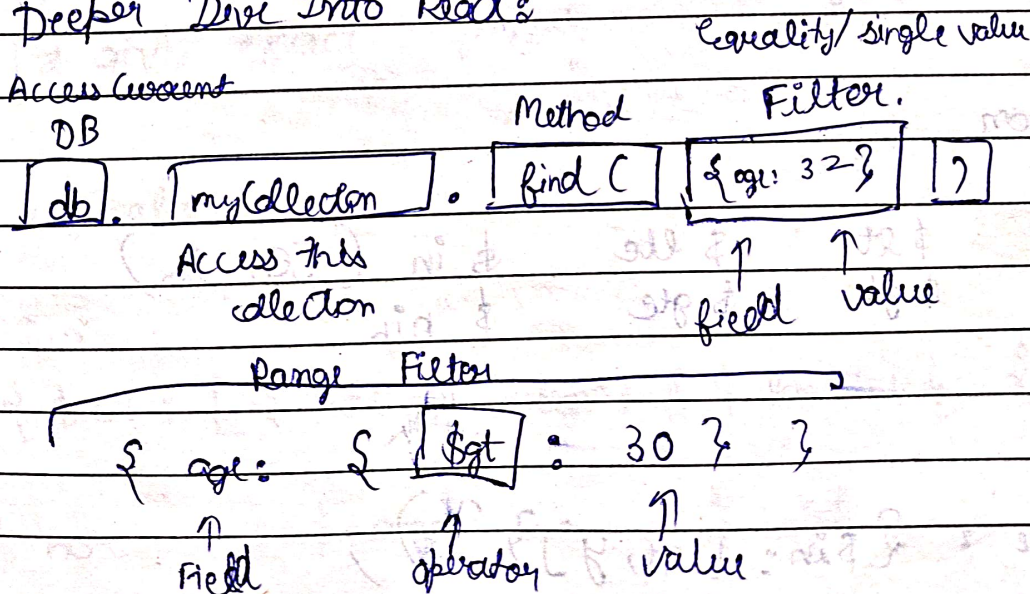 Deeper Dive Into Read:
Equality/single value
Access Current
DB
Method
Filter.
db . myCollection . find ( { age: 32 } )
Access this
collection
field
value
Range Filter
{ age: { $gt : 30 } }
Field
operator
value